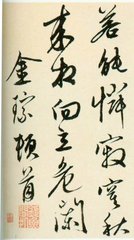 若能憐寂寞秋
来相向立危闌
金琮頓首